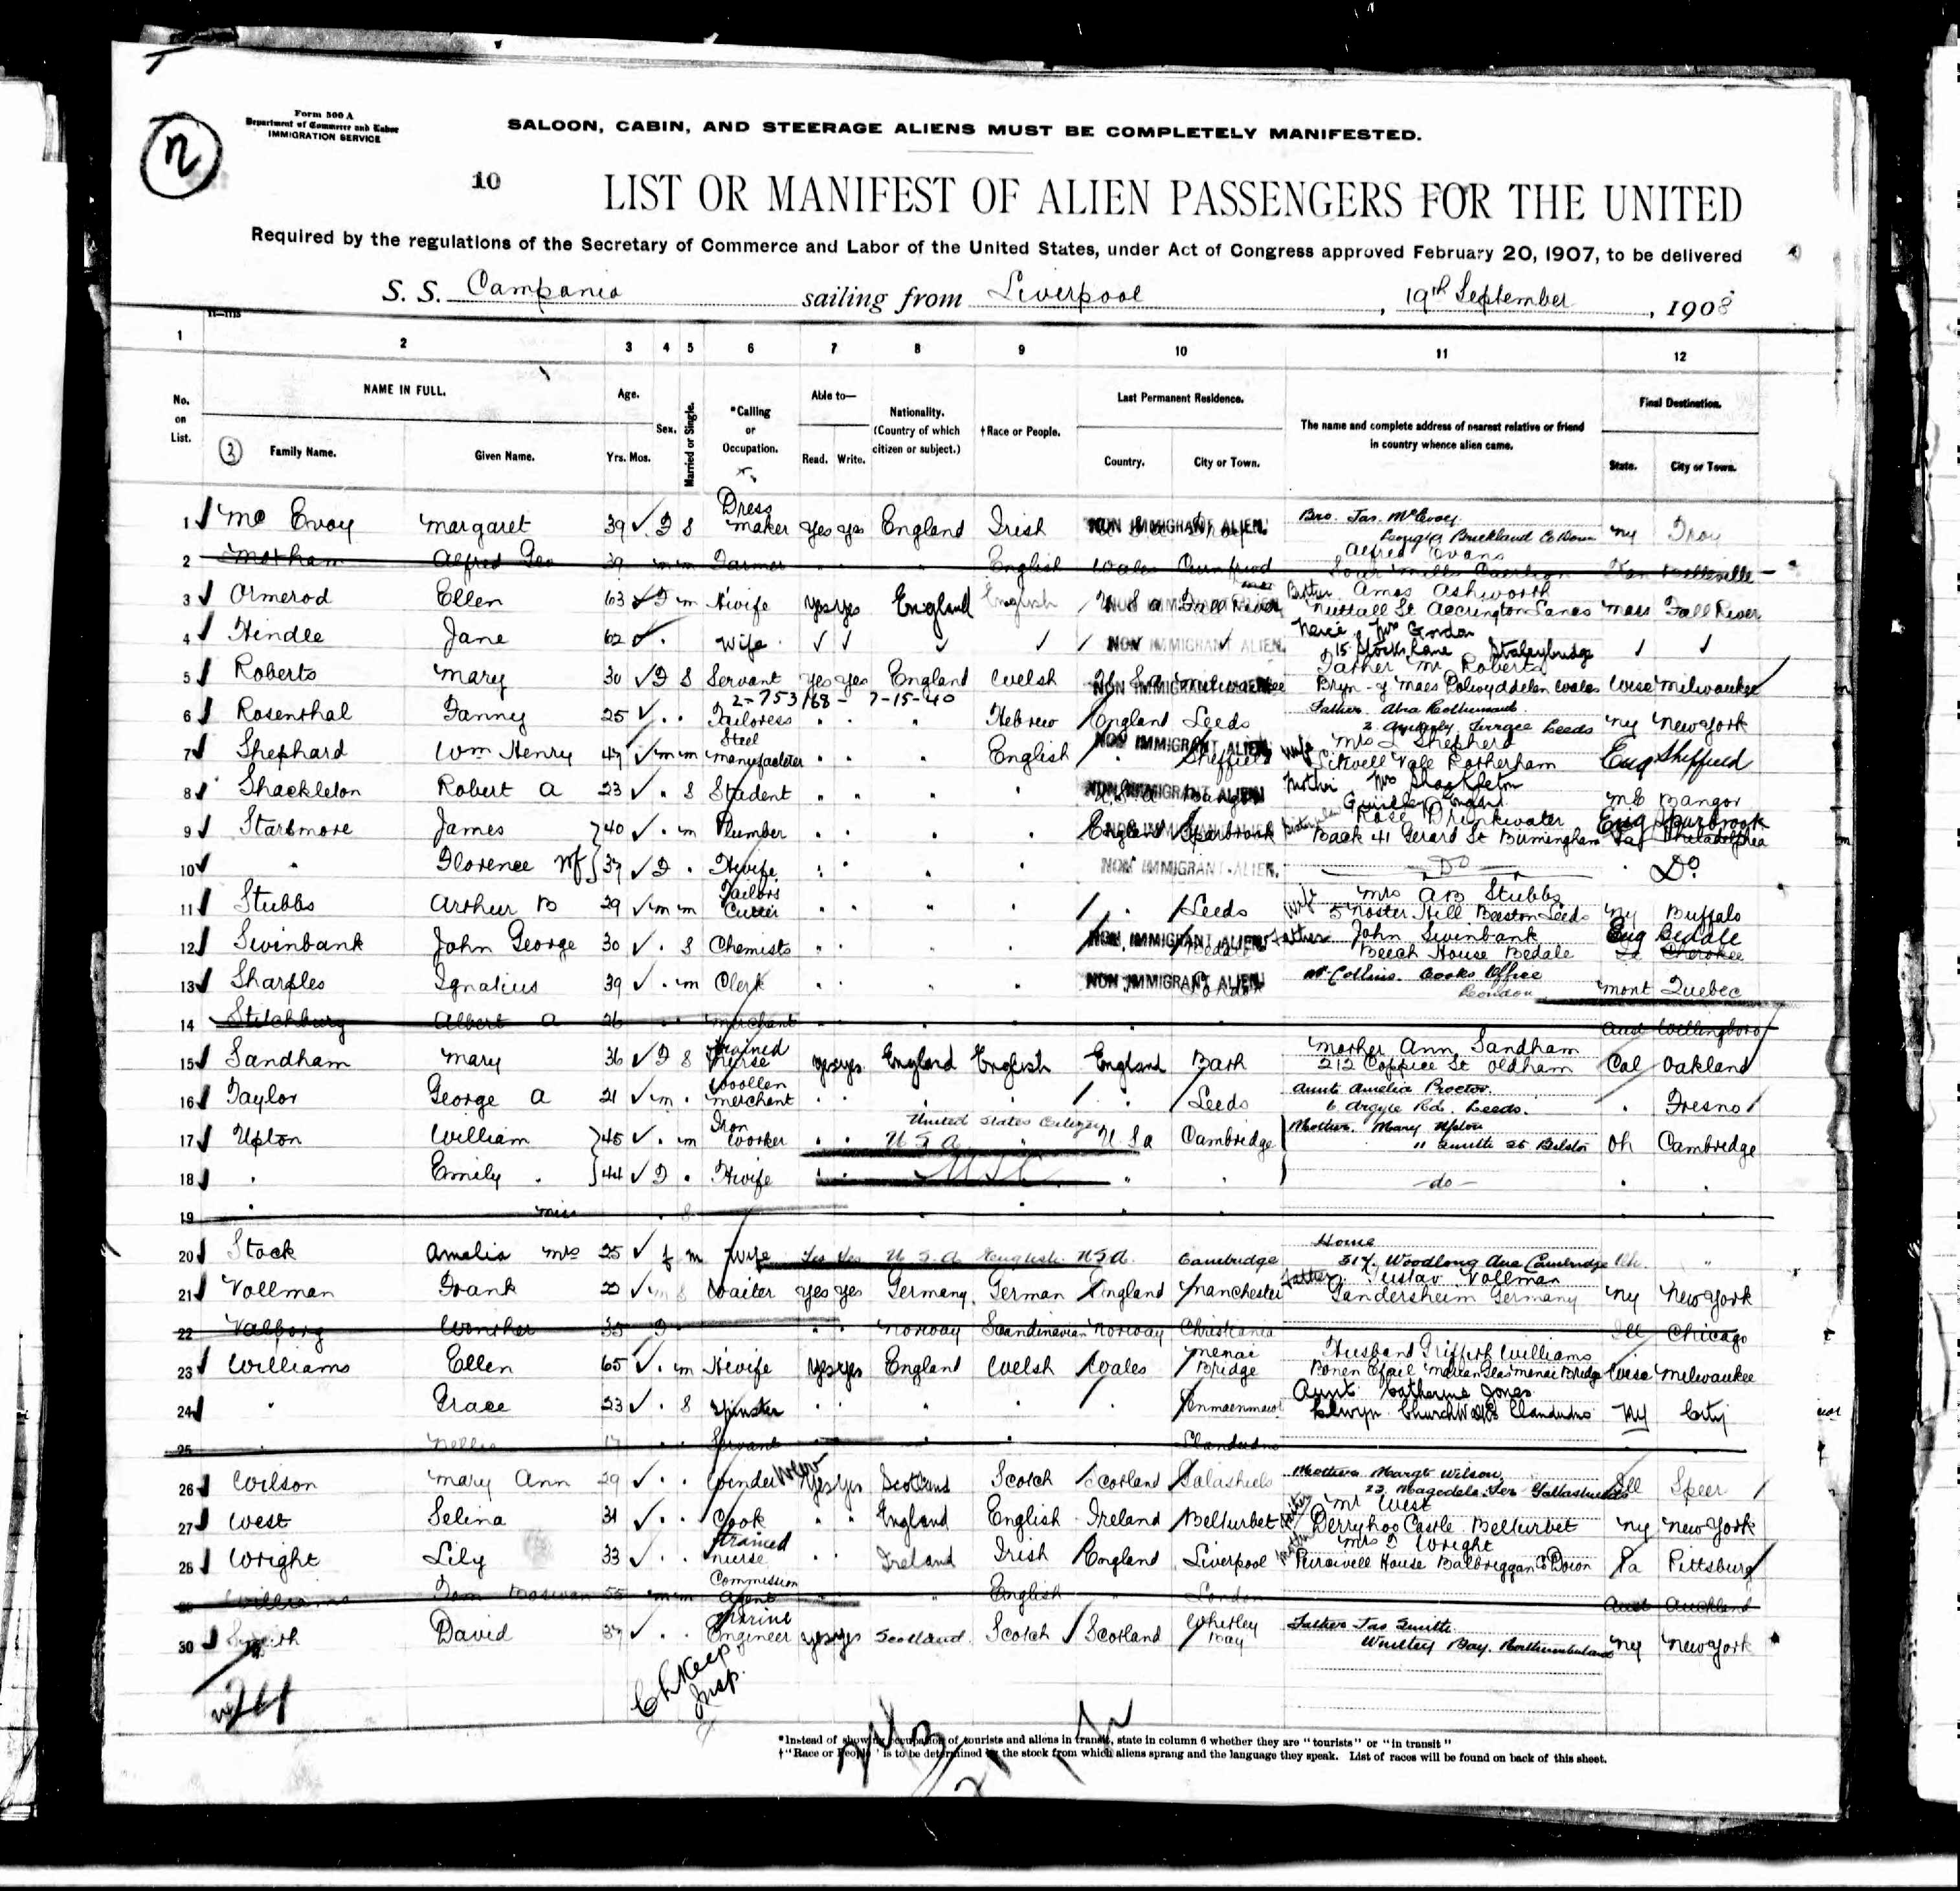 Form 500 A
Department of Commerce and Labor
IMMIGRATION SERVICE
2
SALOON, CABIN, AND STEERAGE ALIENS MUST BE COMPLETELY MANIFESTED.
10
LIST OR MANIFEST OF ALIEN PASSENGERS FOR THE UNITED
Required by the regulations of the Secretary of Commerce and Labor of the United States, under Act of Congress approved February 20, 1907, to be delivered
S. S. Campania sailing from Liverpool, 19th September, 1908
1 2 3 4 5 6 7 8 9 10 11 12
No. on List.
NAME IN FULL.
Family Name. Given Name.
Age.
Yrs. Mos.
Sex.
Married or Single.
*Calling or Occupation.
Able to—
Read. Write.
Nationality. (Country of which citizen or subject.)
†Race or People.
Last Permanent Residence.
Country. City or Town.
The name and complete address of nearest relative or friend in country whence alien came.
Final Destination.
State. City or Town.
1 Mc Evoy Margaret 39 F S Dress maker yes yes England Irish NON IMMIGRANT ALIEN. Bro. Jas. McEvoy Brickland Co Down NY Troy
2 Alfred Geo 39 m m Farmer English Wales Alfred Evans
3 Ormerod Ellen 63 F m Hwife yes yes England English U S a Fall River Amos Ashworth Nuttall St Accrington Lancs Mass Fall River
4 Hindle Jane 62 Wife NON IMMIGRANT ALIEN. Niece Mrs Gordon 15 Stocks Lane Staleybridge
5 Roberts Mary 30 F S Servant yes yes England Welsh NON IMMIGRANT ALIEN Father Mr Roberts Bryn-y Maes Dolwyddelen Wales Wisc Milwaukee
2-753168- 7-15-40
6 Rosenthal Fanny 25 Tailoress Hebrew England Leeds Father Terrace Leeds NY New York
7 Shephard Wm Henry 47 m m Steel manufacter English NON IMMIGRANT ALIEN Sheffield Wife Mrs L Shepherd Sitwell Vale Rotherham Eng Sheffield
8 Shackleton Robert A 23 S Student NON IMMIGRANT ALIEN Mother Mrs Shackleton Me Bangor
9 Starsmore James 40 m Plumber England Sparbrook Rose Drinkwater Back 41 Gerard St Birmingham Eng Sparbrook Philadelphia
10 " Florence Wf 37 F Hwife NON IMMIGRANT ALIEN. Do Do
11 Stubbs Arthur B 29 m m Tailors Cutter Leeds Wife Mrs AB Stubbs Hill Beeston Leeds NY Buffalo
12 Swinbank John George 30 S Chemists NON IMMIGRANT ALIEN Bedale Father John Swinbank Beech House Bedale Eng Bedale Cherokee
13 Sharples Ignatius 39 m Clerk NON IMMIGRANT ALIEN London Mr Collins. Cooks Office London Mont Quebec
14 Albert A 26 Merchant
15 Sandham Mary 36 F S Trained Nurse yes yes England English England Bath Mother Ann Sandham 212 Coppice St Oldham Cal Oakland
16 Taylor George A 21 m Woollen Merchant Leeds Aunt Amelia Proctor. 6 Argyle Rd. Leeds. Fresno
17 Upton William 45 m Iron Worker United States Citizen U S A U S a Cambridge Mother. Mary Upton Oh Cambridge
18 " Emily 44 F Hwife U S A -do-
19 " Miss
20 Stock Amelia Mrs 25 f m Wife Yes Yes U S A English USA Cambridge Home 517 Woodlong Ave Cambridge Oh
21 Vollman Frank 22 Waiter yes yes Germany German England Manchester Father Gustav Vollman Gandersheim Germany NY New York
22 Valborg Winther 35 F Norway Scandinavian Norway Christiania Ill Chicago
23 Williams Ellen 65 m Hwife yes yes England Welsh Wales Menai Bridge Husband Griffith Williams Menai Bridge Wisc Milwaukee
24 " Grace 23 S Spinster Penmaenmawr Aunt Catherine Jones Church Walks Llandudno NY City
25 " Nellie 17 Servant Llandudno
26 Wilson Mary Ann 29 Winder yes yes Scotland Scotch Scotland Galashiels Mother Margt Wilson Ill Speer
27 West Selina 31 Cook England English Ireland Belturbet Mr West Derryhoo Castle Belturbet NY New York
28 Wright Lily 33 Trained Nurse Ireland Irish England Liverpool Mrs Wright House Balbriggan Co Down Pa Pittsburg
29 Williams Tom 55 m m Commission Agent English London Aust Auckland
30 Smith David 37 Marine Engineer yes yes Scotland Scotch Scotland Whitley Bay Father Jas Smith Whitley Bay. Northumberland NY New York
*Instead of showing occupation of tourists and aliens in transit, state in column 6 whether they are "tourists" or "in transit"
†"Race or People" is to be determined by the stock from which aliens sprang and the language they speak. List of races will be found on back of this sheet.